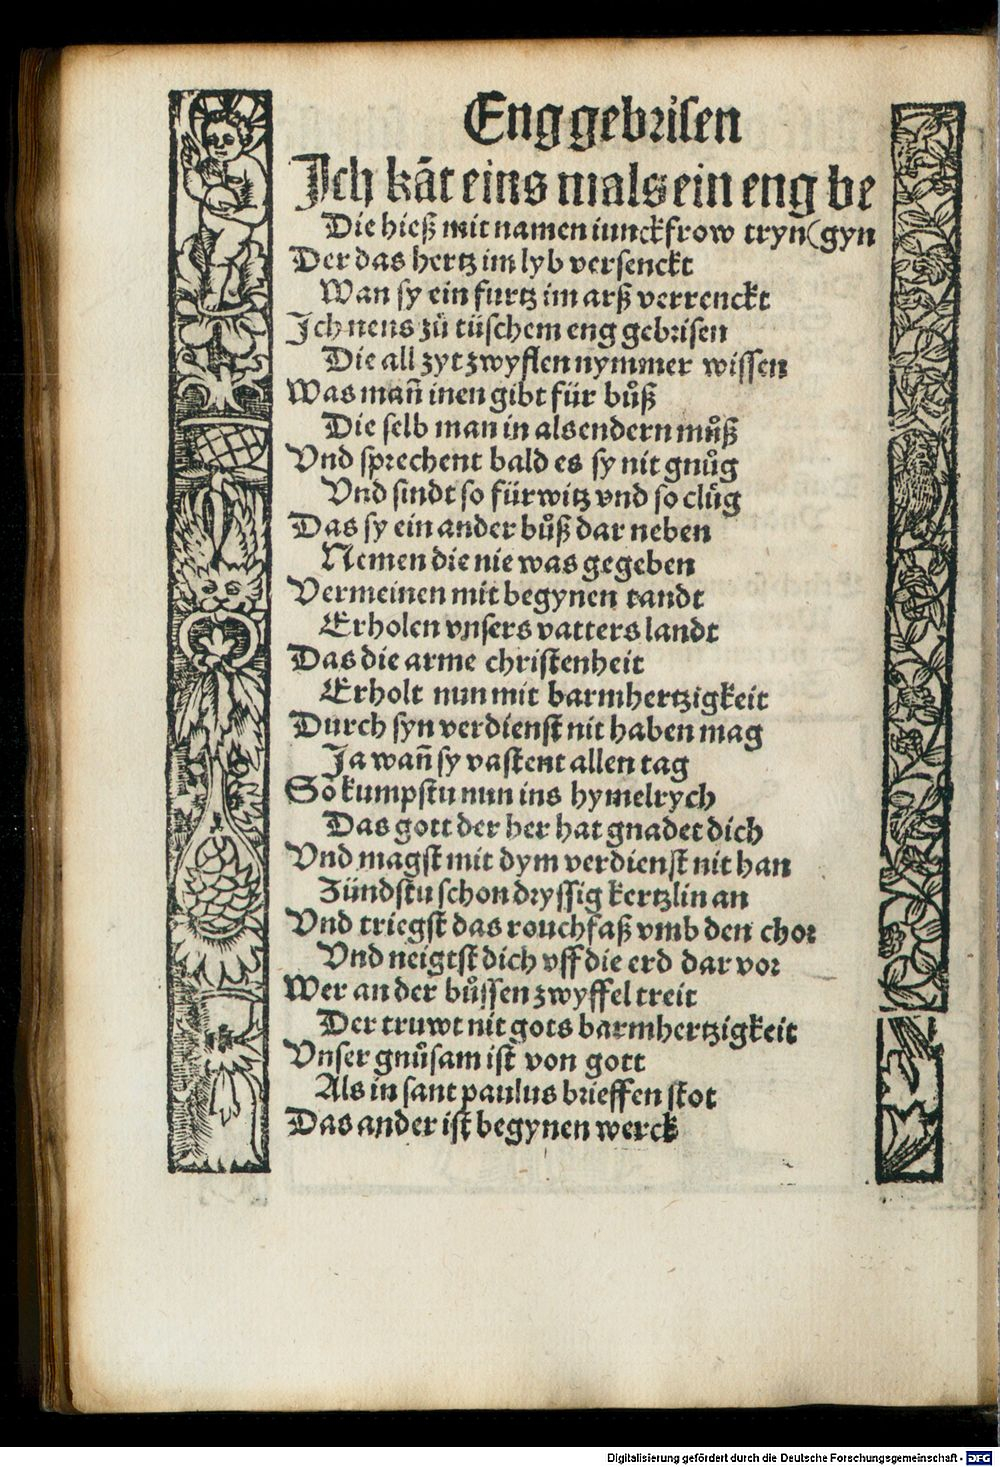 Eng gebrisen
Jch kāt eins mals ein eng be
Die hieß mit namen iunckfrow tryn (gyn
Der das hertz im lyb versenckt
Wan sy ein furtz im arß verrenckt
Jch nens zů tüschem eng gebrisen
Die all zyt zwyflen nymmer wissen
Was mañ inen gibt für bůß
Die selb man in als endern můß
Vnd sprechent bald es sy nit gnůg
Vnd sindt so fürwitz vnd so clůg
Das sy ein ander bůß dar neben
Nemen die nie was gegeben
Vermeinen mit begynen tandt
Erholen vnsers vatters landt
Das die arme christenheit
Erholt nun mit barmhertzigkeit
Durch syn verdienst nit haben mag
Ja wañ sy vastent allen tag
So kumpstu nun ins hymelrych
Das gott der her hat gnadet dich
Vnd magst mit dym verdienst nit han
Zündstu schon dryssig kertzlin an
Vnd triegst das rouchfaß vmb den chor
Vnd neigtst dich vff die erd dar vor
Wer an der bůssen zwyffel treit
Der truwt nit gots barmhertzigkeit
Vnser gnůsam ist von gott
Als in sant paulus brieffen stot
Das ander ist begynen werck
Digitalisierung gefördert durch die Deutsche Forschungsgemeinschaft - DFG